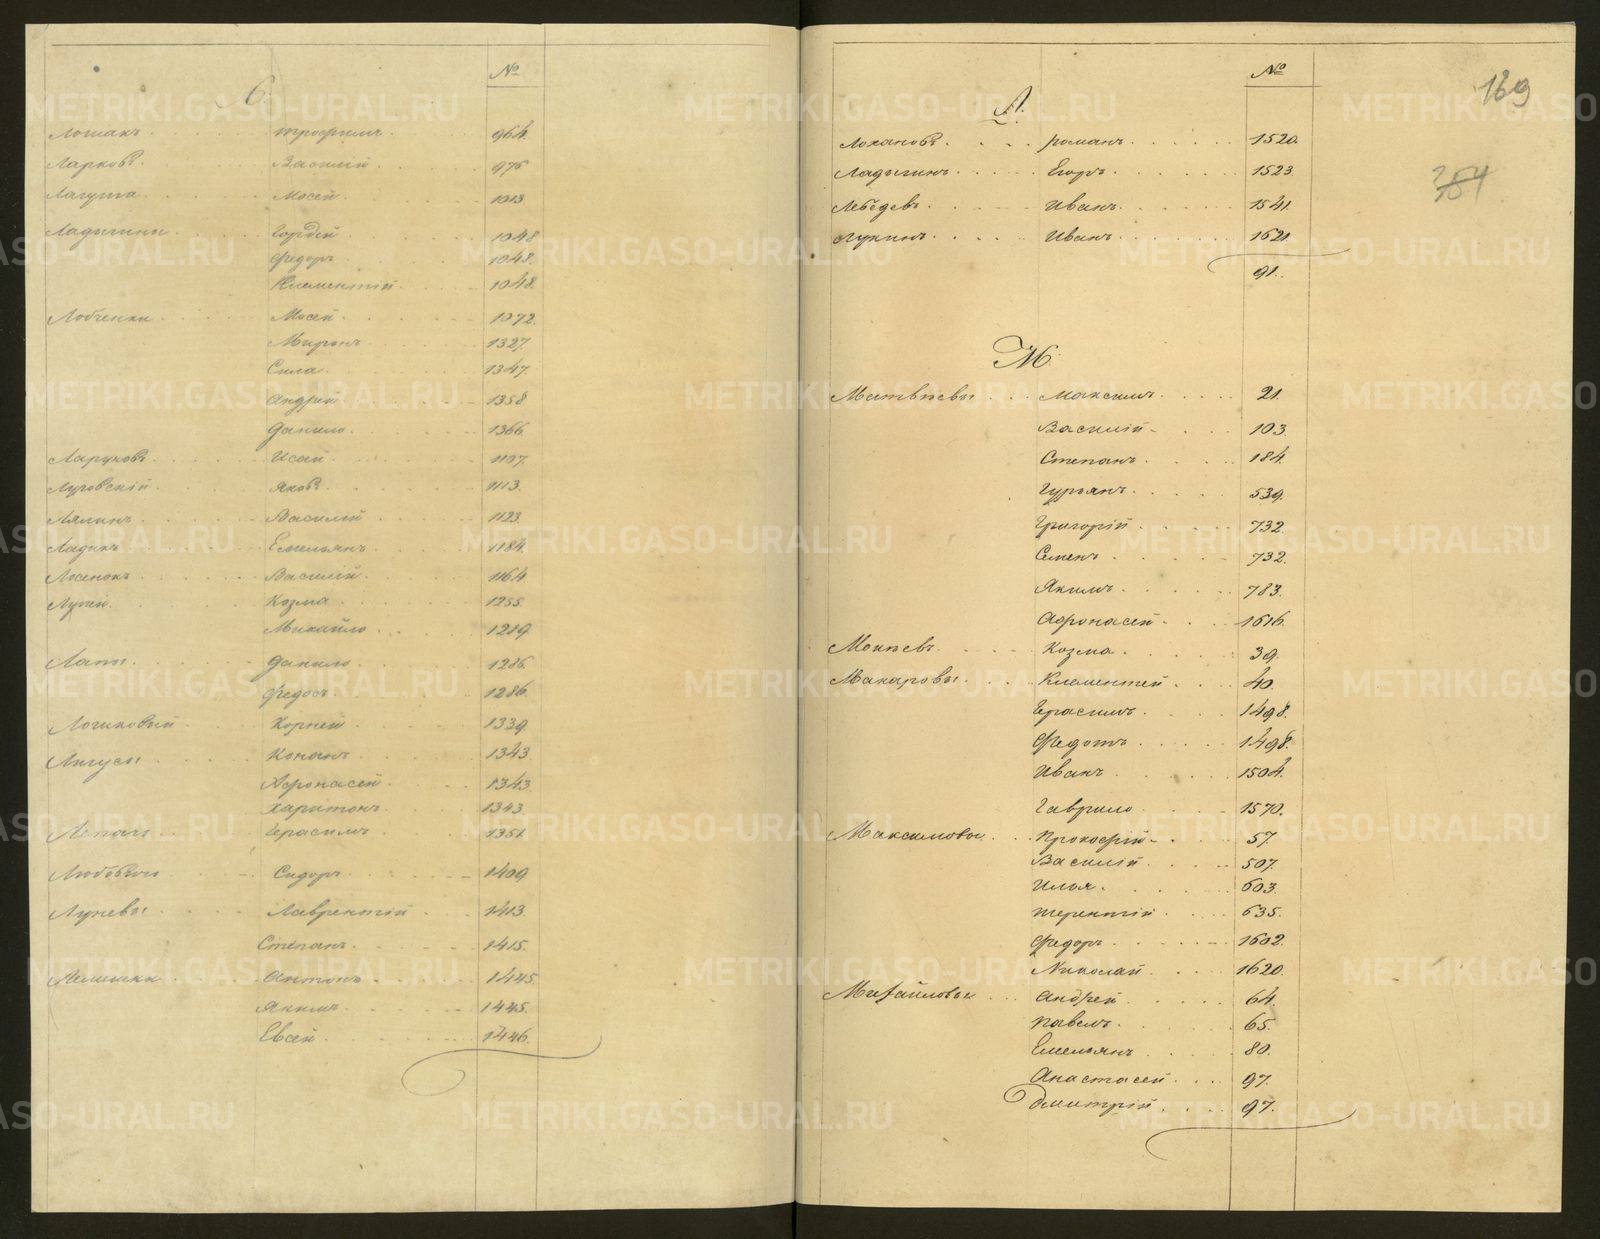 №
Л.
Лошакъ. Трофимъ. 964.
Ларковъ. Василий. 976
Лагута Мосей. 1013
Ладыгины Гордей. 1048
Федоръ. 1048.
Клементій. 1048.
Лобченки Мосей. 1072.
Миронъ. 1327.
Сила. 1347.
Андрей 1358
Данило. 1366.
Ларуковъ. Исай. 1107.
Луговскій. Яковъ. 1113.
Лялинъ. Василій 1123.
Ладикъ. Емельянъ. 1184.
Лосенокъ. Василій. 1164
Козма 1255.
Михайло. 1219.
Лапы. Данило. 1286.
Федосъ. 1286.
Логиновый Корней 1339.
Лигусы Кононъ. 1343.
Афонасей 1343.
Харитонъ. 1343.
Герасимъ. 1351.
Сидоръ. 1409
Луневы Лаврентій 1413.
Степанъ. 1415.
Лемешки Антонъ. 1445.
Якимъ. 1445.
Евсей 1446.
№
169
Л.
Лохановъ. Романъ. 1520.
384
Ладыгинъ. Егоръ. 1523.
Лебедевъ. Иванъ. 1541.
Лукинъ. Иванъ. 1621.
91.
М.
Матвѣевы Максимъ. 21.
Василій 103.
Степанъ. 184.
Гурьянъ. 539.
Григорій 732.
Семенъ. 732.
Якимъ. 783.
Афонасей. 1616.
Мокѣевъ. Козма. 39.
Макаровы. Клементей. 40.
Герасимъ. 1498.
Федотъ. 1498.
Иванъ. 1504.
Гаврило 1570.
Максимовы Прокофій 57.
Василій 507.
Илья. 603.
Терентій. 635.
Федоръ. 1602.
Николай 1620.
Михайловы Андрей 64.
Павелъ. 65.
Емельянъ. 80.
Анастасей. 97.
Дмитрій. 97.
METRIKI.GASO-URAL.RU